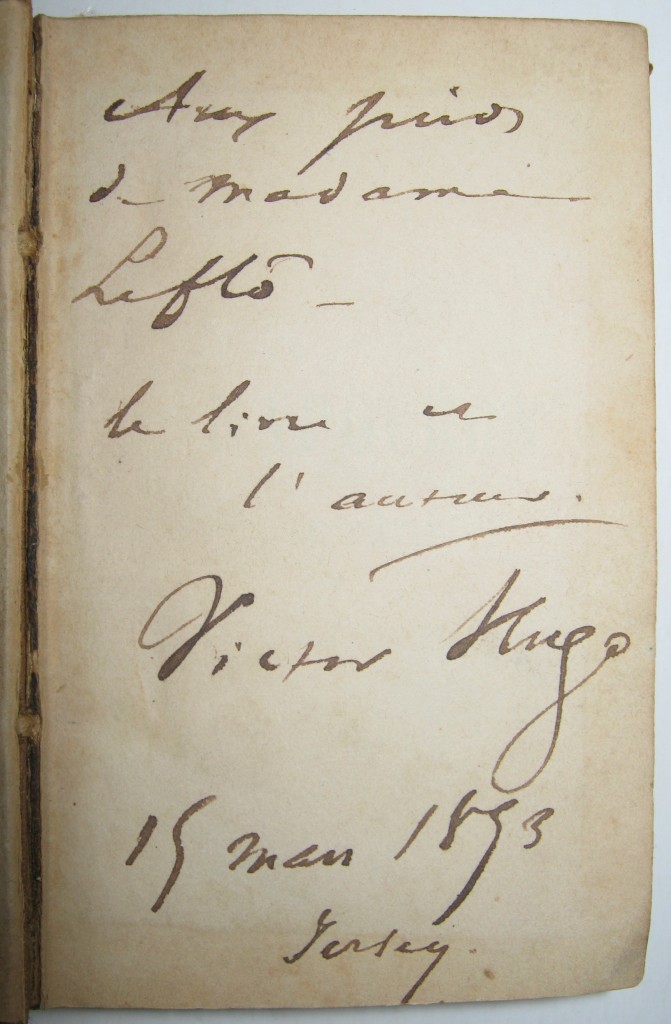 Aux pieds
de madame
Leflô –
le livre et
l'auteur.
Victor Hugo
15 mars 1853
Jersey.